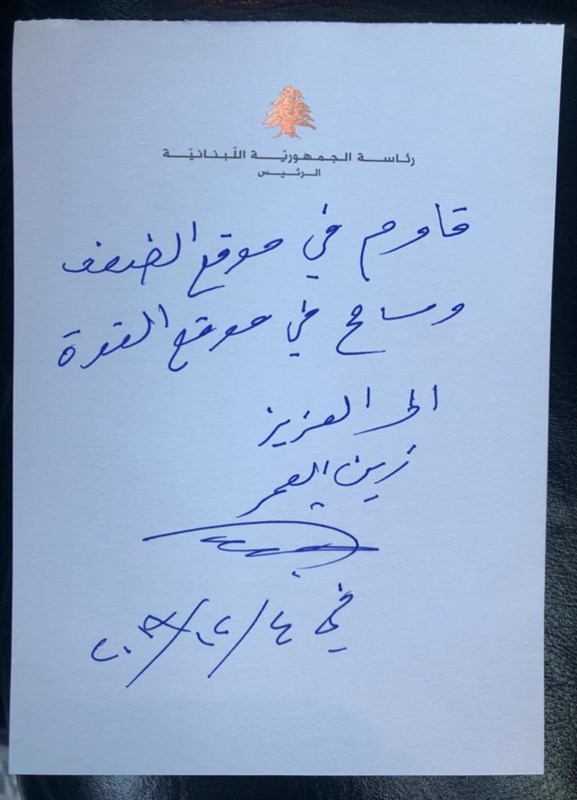 رئاسة الجمهوريّة اللّبنانيّة
الرئيس
قاوم في موقع الضعف
وسامح في موقع القوة
الى العزيز
زين العمر
في ٤/